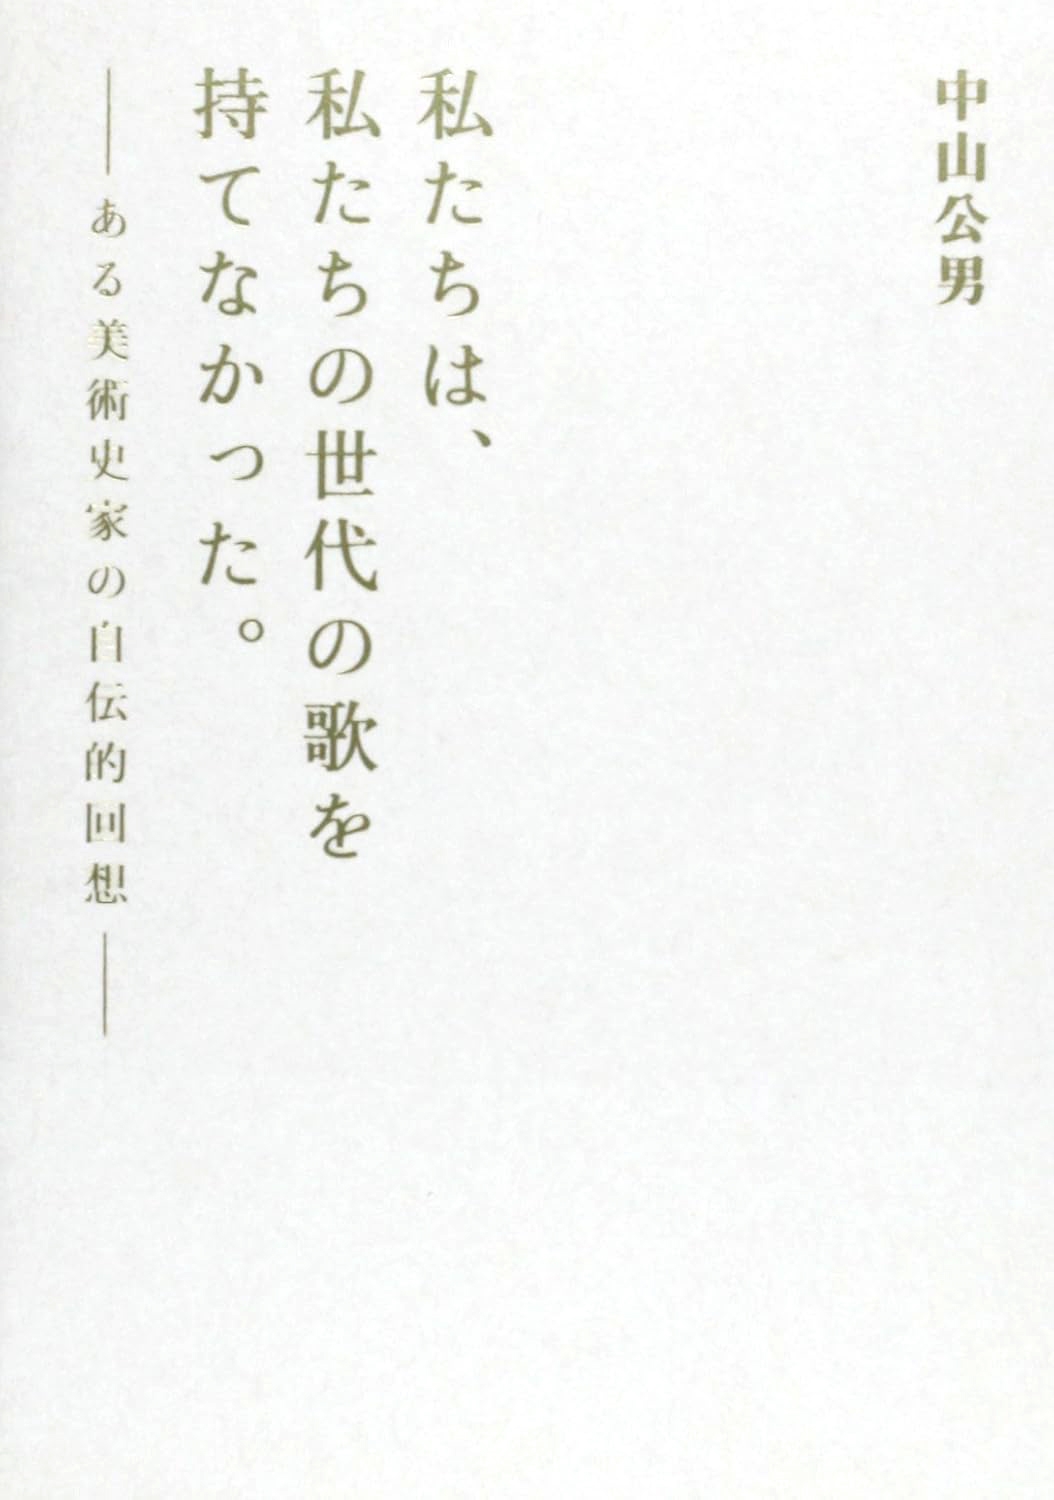 中山公男
私たちは、
私たちの世代の歌を
持てなかった。
――ある美術史家の自伝的回想――